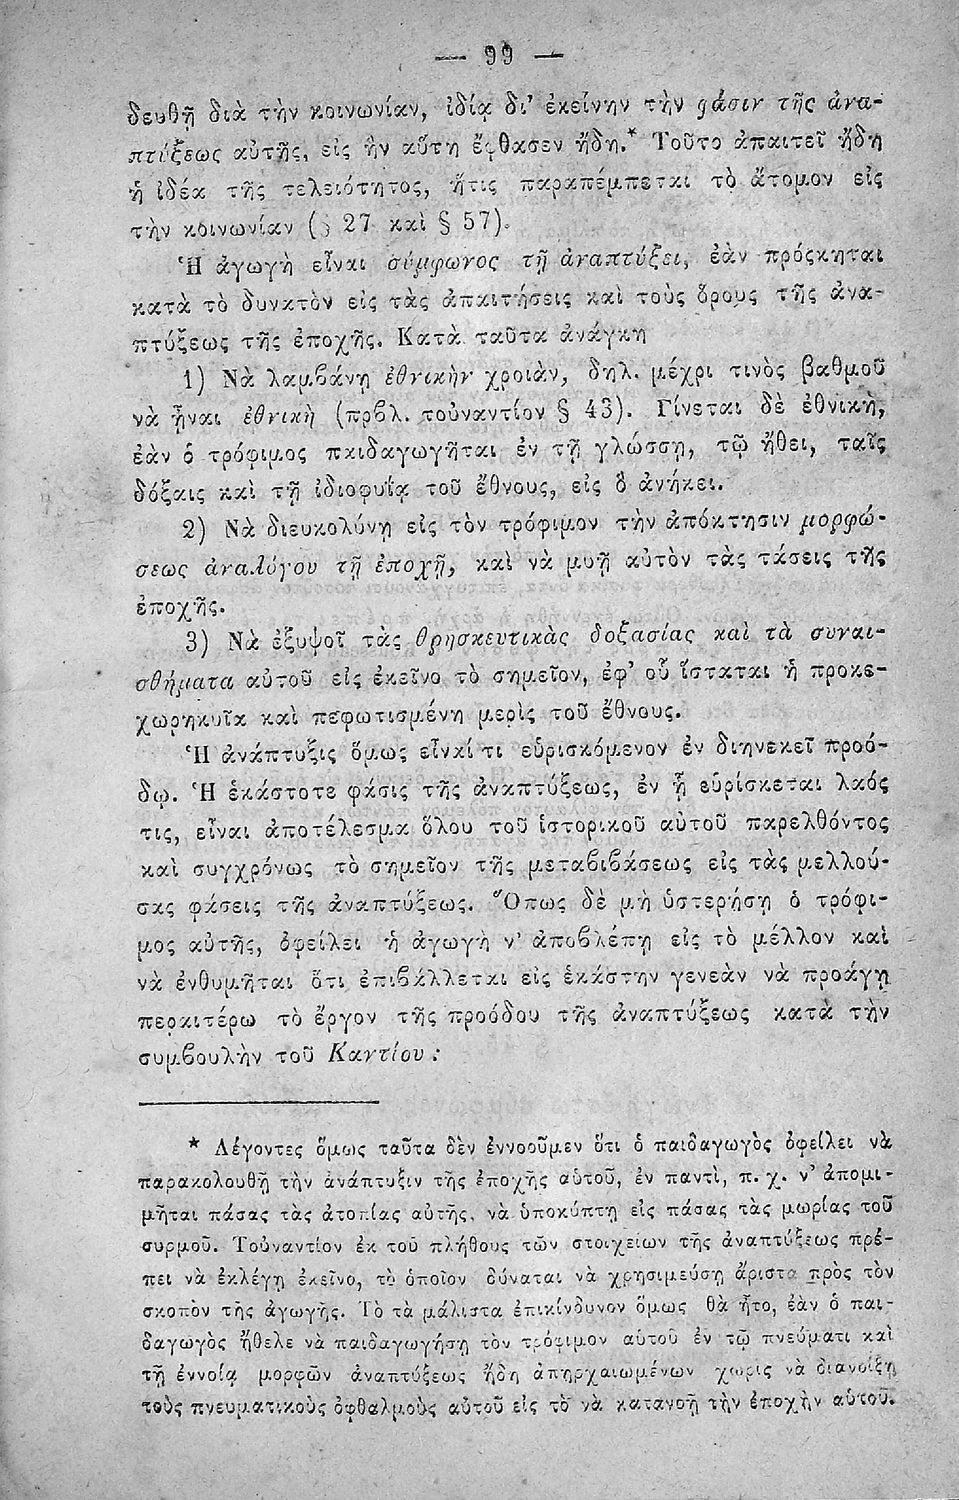 — 99 —
δευθῇ διὰ τὴν κοινωνίαν, ἰδίᾳ δι' ἐκείνην τὴν φάσιν τῆς ἀνα-
πτύξεως αὐτῆς, εἰς ἣν αὕτη ἔφθασεν ἤδη.* Τοῦτο ἀπαιτεῖ ἤδη
ἡ ἰδέα τῆς τελειότητος, ἥτις παραπέμπεται τὸ ἄτομον εἰς
τὴν κοινωνίαν (§ 27 καὶ § 57).
Ἡ ἀγωγὴ εἶναι σύμφωνος τῇ ἀναπτύξει, ἐὰν πρόςκηται
κατὰ τὸ δυνατὸν εἰς τὰς ἀπαιτήσεις καὶ τοὺς ὅρους τῆς ἀνα-
πτύξεως τῆς ἐποχῆς. Κατὰ ταῦτα ἀνάγκη
1) Νὰ λαμβάνῃ ἐθνικὴν χροιὰν, δηλ. μέχρι τινὸς βαθμοῦ
νὰ ᾖναι ἐθνικὴ (πρβλ. τοὐναντίον § 43). Γίνεται δὲ ἐθνικὴ,
ἐὰν ὁ τρόφιμος παιδαγωγῆται ἐν τῇ γλώσσῃ, τῷ ἤθει, ταῖς
δόξαις καὶ τῇ ἰδιοφυΐᾳ τοῦ ἔθνους, εἰς ὃ ἀνήκει.
2) Νὰ διευκολύνῃ εἰς τὸν τρόφιμον τὴν ἀπόκτησιν μορφώ-
σεως ἀναλόγου τῇ ἐποχῇ, καὶ νὰ μυῇ αὐτὸν τὰς τάσεις τῆς
ἐποχῆς.
3) Νὰ ἐξυψοῖ τὰς θρησκευτικὰς δοξασίας καὶ τὰ συναι-
σθήματα αὐτοῦ εἰς ἐκεῖνο τὸ σημεῖον, ἐφ' οὗ ἵσταται ἡ προκε-
χωρηκυῖα καὶ πεφωτισμένη μερὶς τοῦ ἔθνους.
Ἡ ἀνάπτυξις ὅμως εἶναί τι εὑρισκόμενον ἐν διηνεκεῖ προό-
δῳ. Ἡ ἑκάστοτε φάσις τῆς ἀναπτύξεως, ἐν ᾗ εὑρίσκεται λαός
τις, εἶναι ἀποτέλεσμα ὅλου τοῦ ἱστορικοῦ αὐτοῦ παρελθόντος
καὶ συγχρόνως τὸ σημεῖον τῆς μεταβιβάσεως εἰς τὰς μελλού-
σας φάσεις τῆς ἀναπτύξεως. Ὅπως δὲ μὴ ὑστερήσῃ ὁ τρόφι-
μος αὐτῆς, ὀφείλει ἡ ἀγωγὴ ν' ἀποβλέπῃ εἰς τὸ μέλλον καὶ
νὰ ἐνθυμῆται ὅτι ἐπιβάλλεται εἰς ἑκάστην γενεὰν νὰ προάγῃ
περαιτέρω τὸ ἔργον τῆς προόδου τῆς ἀναπτύξεως κατὰ τὴν
συμβουλὴν τοῦ Καντίου :
* Λέγοντες ὅμως ταῦτα δὲν ἐννοοῦμεν ὅτι ὁ παιδαγωγὸς ὀφείλει νὰ
παρακολουθῇ τὴν ἀνάπτυξιν τῆς ἐποχῆς αὐτοῦ, ἐν παντὶ, π. χ. ν' ἀπομι-
μῆται πάσας τὰς ἀτοπίας αὐτῆς, νὰ ὑποκύπτῃ εἰς πάσας τὰς μωρίας τοῦ
συρμοῦ. Τοὐναντίον ἐκ τοῦ πλήθους τῶν στοιχείων τῆς ἀναπτύξεως πρέ-
πει νὰ ἐκλέγῃ ἐκεῖνο, τὸ ὁποῖον δύναται νὰ χρησιμεύσῃ ἄριστα πρὸς τὸν
σκοπὸν τῆς ἀγωγῆς. Τὸ τὰ μάλιστα ἐπικίνδυνον ὅμως θὰ ἦτο, ἐὰν ὁ παι-
δαγωγὸς ἤθελε νὰ παιδαγωγήσῃ τὸν τρόφιμον αὐτοῦ ἐν τῷ πνεύματι καὶ
τῇ ἐννοίᾳ μορφῶν ἀναπτύξεως ἤδη ἀπηρχαιωμένων χωρὶς νὰ διανοίξῃ
τοὺς πνευματικοὺς ὀφθαλμοὺς αὐτοῦ εἰς τὸ νὰ κατανοῇ τὴν ἐποχὴν αὐτοῦ.